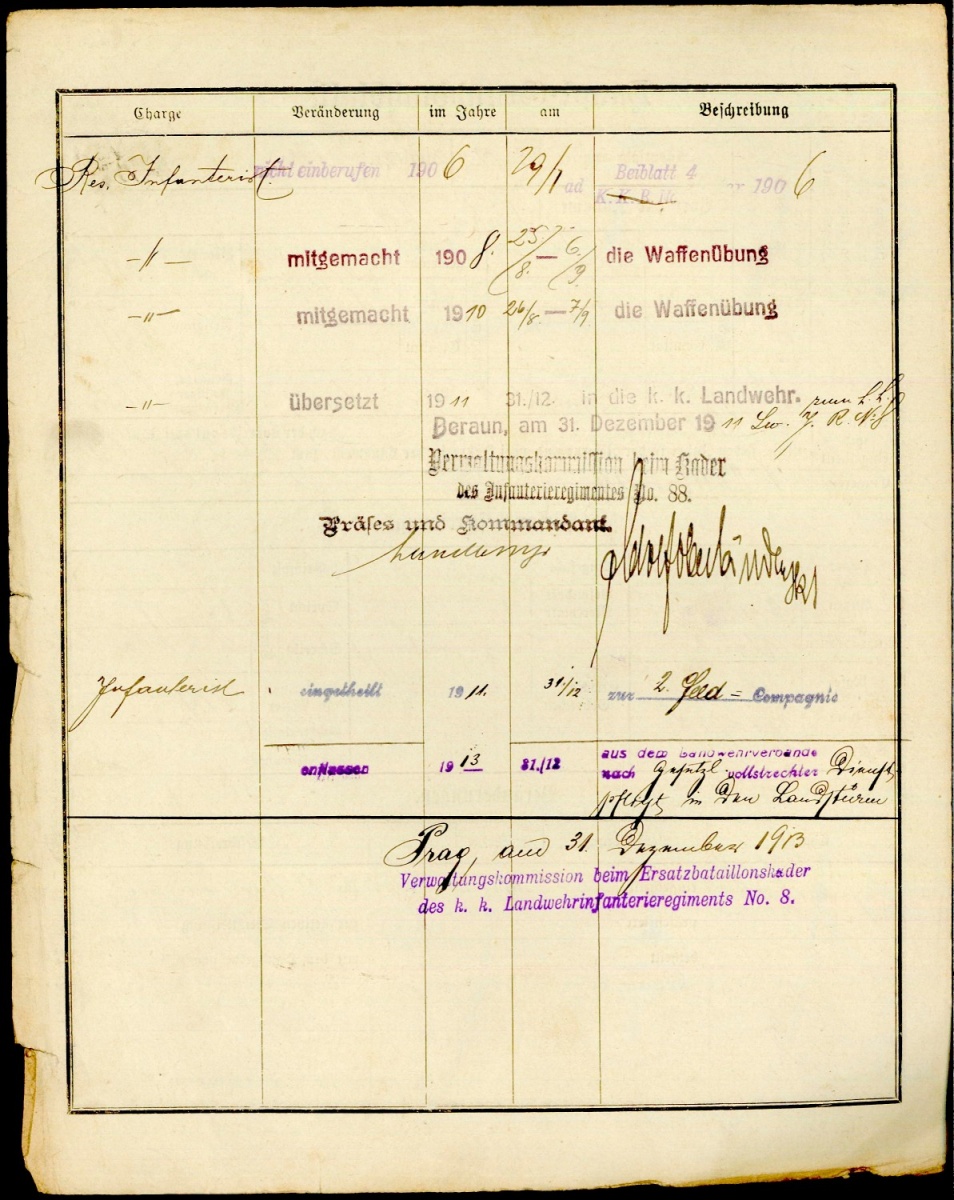 Charge Veränderung im Jahre am Beschreibung
Res. Infanterist. nicht einberufen 1906 29/1 ad Beiblatt 4
K. K. B. M. nr 1906
-〃- mitgemacht 1908. 25./8. — 6./9. die Waffenübung
-〃- mitgemacht 1910 26/8. — 7/9 die Waffenübung
-〃- übersetzt 1911 31./12. in die k. k. Landwehr. zum k. k.
Beraun, am 31. Dezember 1911 Lw. J. R. N: 8
Verwaltungskommission beim Kader
des Infanterieregimentes No. 88.
Präses und Kommandant.
Infanterist eingetheilt 1911. 31/12 zur 2. Feld = Compagnie
entlassen 1913 31./12 aus dem Landwehrverbande
nach gesetzl. vollstreckter Dienst
pflicht in den Landsturm
Prag, am 31. Dezember 1913
Verwaltungskommission beim Ersatzbataillonskader
des k. k. Landwehrinfanterieregiments No. 8.